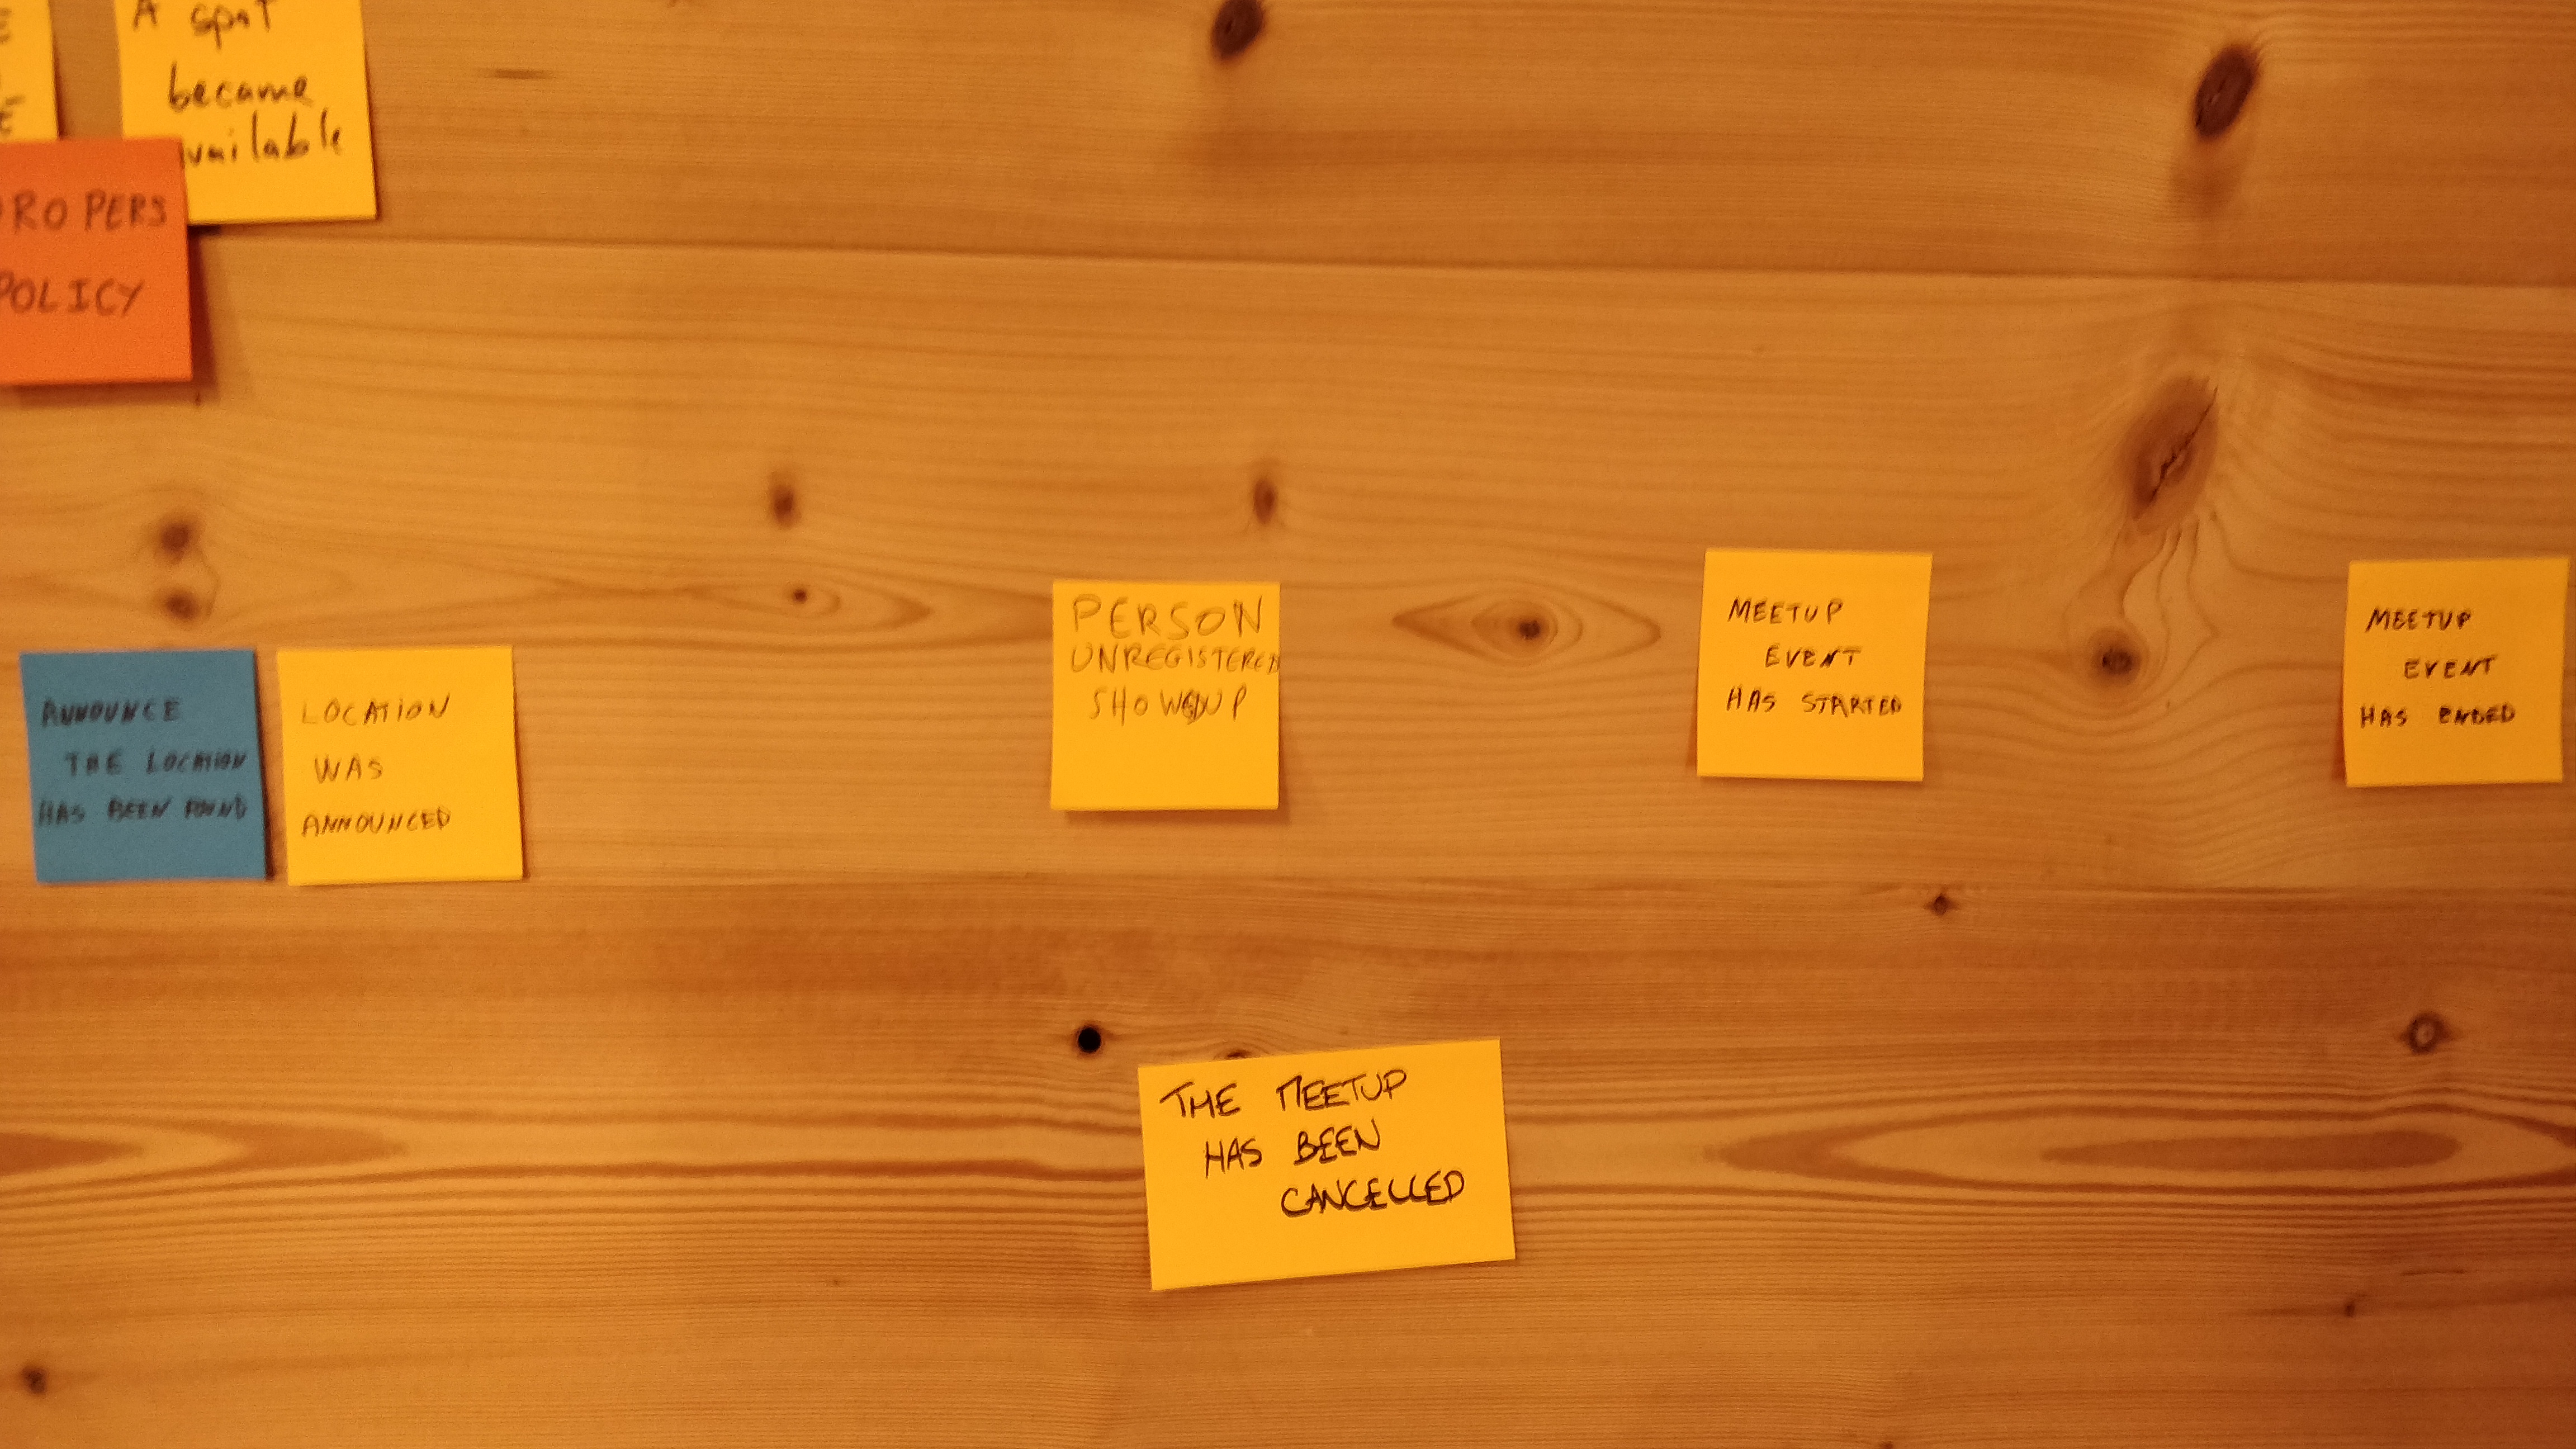 A spot
became
available
ROPERS
POLICY
ANNOUNCE
THE LOCATION
HAS BEEN FOUND
LOCATION
WAS
ANNOUNCED
PERSON
UNREGISTERED
SHOWDUP
MEETUP
EVENT
HAS STARTED
MEETUP
EVENT
HAS ENDED
THE MEETUP
HAS BEEN
CANCELLED